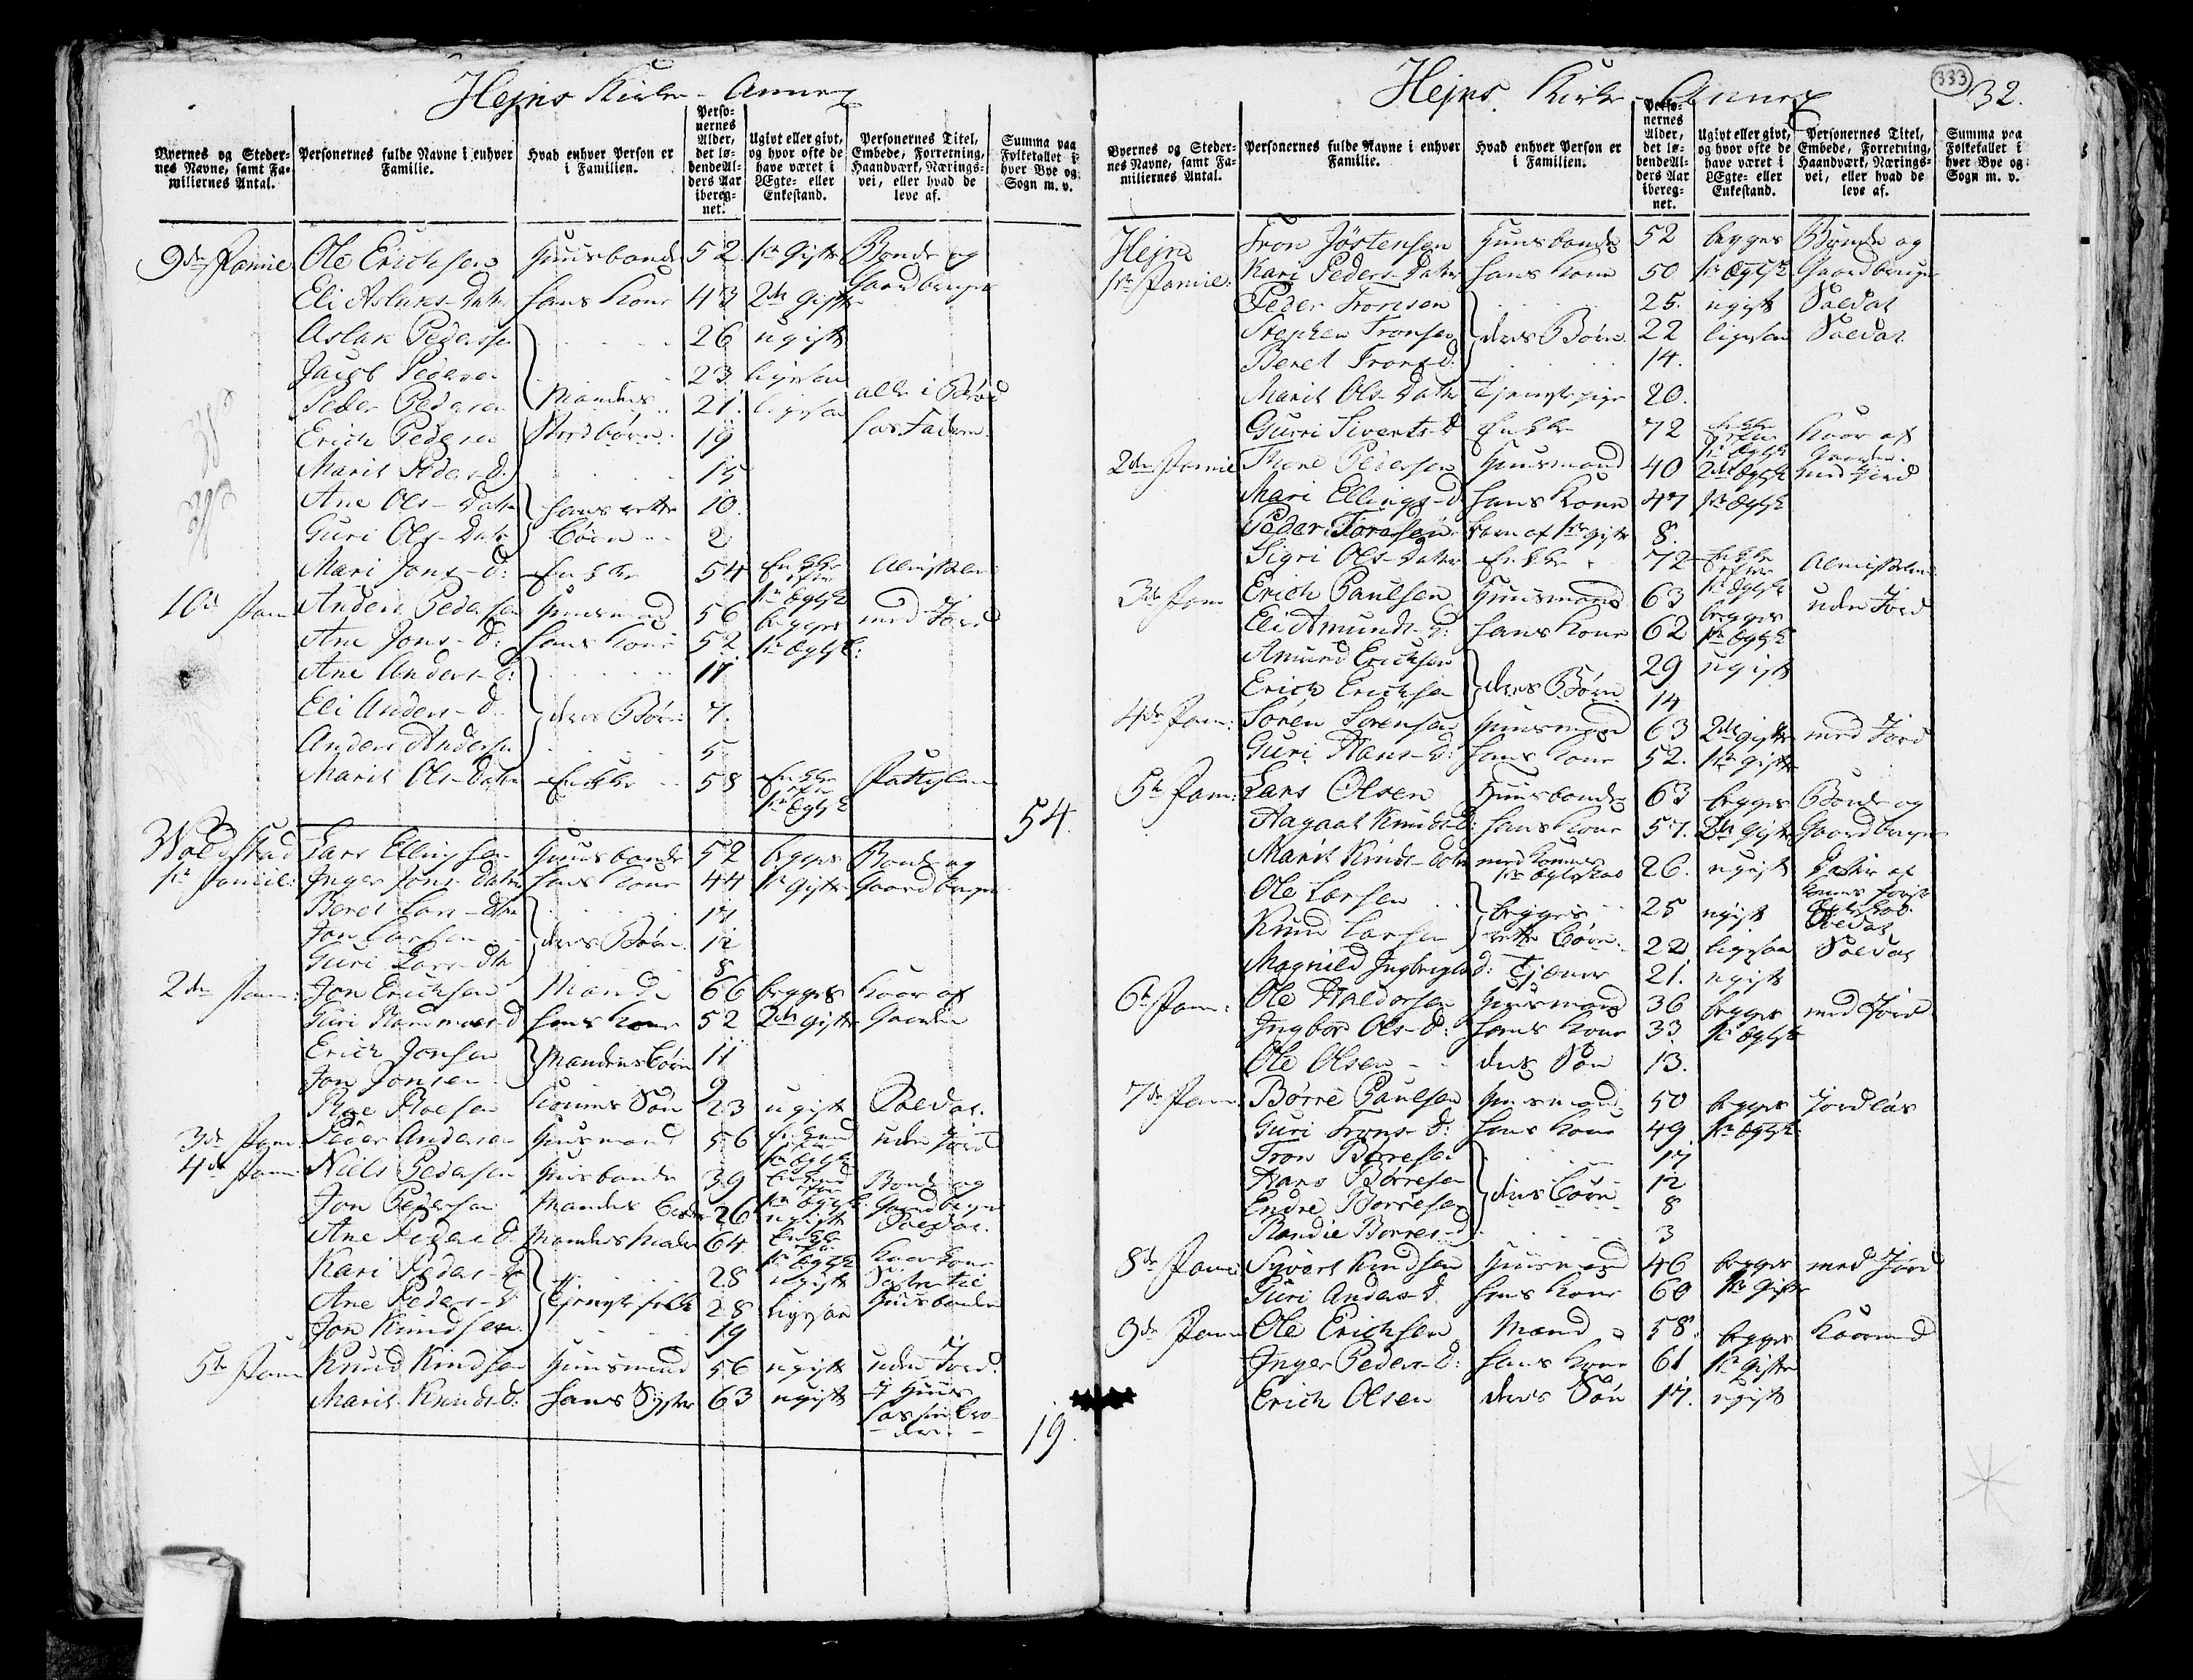 Hejns Kirke - Annex
Byernes og Steder-
nes Navne, samt Fa-
miliernes Antal.
Personernes fulde Navne i enhver
Familie.
Hvad enhver Person er
i Familien.
Perso-
nernes
Alder,
det lø-
bendeAl-
ders Aar
ibereg-
net.
Ugivt eller givt,
og hvor ofte de
have været i
Ægte- eller
Enkestand.
Personernes Titel,
Embede, Forretning,
Haandværk, Nærings-
vei, eller hvad de
leve af.
Summa paa
Folketallet i
hver Bye og
Sogn m. v.
9de Familie Ole Erichsen Huusbonde 52 1te Gifte Bonde og
Eli Aslaks-Datr hans Kone 43 2det Gifte Gaardbruger
Aslak Pedersen 26 ugift
Jacob Pedersen 23 ligesaa
Peder Pedersen Mandens 21 ligesaa alle i Brød
Erich Pedersen Stedbørn 19 hos Faderen
Marit Peders-D: 15
Ane Ols-Datr hans ægte 10
Guri Ols-Datr Børn 2
Mari Jons-D: Enke 54 Enke efter 1te Ægtsk Almisselem
10de Fam Anders Pedersen Huusmand 56 begges med Jord
Ane Jons-D: hans Kone 52 1te Ægtsk:
Ane Anders-D: 17
Eli Anders-D deres Børn 7
Anders Andersen 5
Marit Ols-Datr Enke 58 Enke efter 1te Ægtsk
54.
Woldstad Lars Ellingsen Huusbonde 52 begges Bonde og
1te Familie: Inger Jons-Datr hans Kone 44 1te Gifte Gaardbruger
Beret Lars-Dtr 17
Jon Larsen deres Børn 12
Guri Lars-Dtr 8
2den Fam: Jon Erichsen Mand 66 begges Kaar af
Guri -D hans Kone 52 2det Gifte Gaarden
Erich Jonsen Mandens Børn 11
Jon Jonsen 9
Roe Roesen Konens Søn 23 ugift Soldat.
3de Fam Peder Andersen Huusmand 56 Enkemand efter 1te Ægtsk uden Jord
4de Fam Niels Pedersen Huusbonde 39 Enkemand efter 1te Ægtsk: Bonde og
Gaardbruger
Jon Pedersen Mandens Broder 26 ugift Soldat.
Ane Peders D. Mandens Moder 64 Enke efter 1te Ægtsk Kaarkone
Kari Peders-D 28 ugift Søster til
Ane Peders-D Tjenestefolk 28 ligesaa Huusbonden
Jon Knudsen 19
5te Fam Knud Knudsen Huusmand 56 ugift uden Jord.
Marit Knuds-D: hans Søster 63 ugift i Huus
hos sin Bro-
der.
19.
333
32.
Hejns Kirke - Annex
Byernes og Steder-
nes Navne, samt Fa-
miliernes Antal.
Personernes fulde Navne i enhver
Familie.
Hvad enhver Person er
i Familien.
Perso-
nernes
Alder,
det lø-
bendeAl-
ders Aar
ibereg-
net.
Ugivt eller givt,
og hvor ofte de
have været i
Ægte- eller
Enkestand.
Personernes Titel,
Embede, Forretning,
Haandværk, Nærings-
vei, eller hvad de
leve af.
Summa paa
Folketallet i
hver Bye og
Sogn m. v.
Hejne Tron Jøstensen Huusbonde 52 begges Bonde og
1te Familie: Kari Peders-Datr hans Kone 50 1te Ægtsk Gaardbruger
Peder Tronsen 25. ugift Soldat
Stephen Tronsen deres Børn 22 ligesaa Soldat
Beret Trons-D: 14.
Marit Ols-Datr Tjenestepige 20.
Gurri Siverts-D Enke 72 Enke efter 1te Ægtsk Kaar af
Gaarden.
2den Familie Tore Pedersen Huusmand 40 2det Ægtsk med Jord
Mari Ellings-D hans Kone 47 1te Ægtsk
Peder Toresen Barn af 1te Gifte 8.
Sigri Ols-Datr Enke 72 Enke efter 1te Ægtsk Almisselem
3de Fam Erich Paulsen Huusmand 63 begges uden Jord
Eli Amunds-D: hans Kone 62 1te Ægtsk
Amund Erichsen 29 ugift
Erich Erichsen deres Børn 14
4de Fam: Søren Sørensen Huusmand 63 2det Gifte med Jord
Guri Hans-D: hans Kone 52. 1te Gifte
5te Fam: Lars Olsen Huusbonde 63 begges Bonde og
Aagaat Knuds-D: hans Kone 57. 2det Gifte Gaardbruger
Marit Knuds-Datr 26. ugift Datter af
Konens første
Ægteskab.
Ole Larsen begges 25 ugift Soldat
Knud Larsen ægte Børn 22 ligesaa Soldat
Magnild Ingbrigts D: Tjener 21. ugift
6te Fam: Ole Haldorsen Huusmand 36 begges med Jord
Ingbor Ols-D: hans Kone 33 1te Ægtsk
Ole Olsen - - deres Søn 13.
7de Fam. Børre Paulsen Huusmand 50 begges Jordløs
Guri Trons-D: hans Kone 49. 1te Ægtsk
Tron Børresen 17
Hans Børresen 12
Endre Børresen deres Børn 8
Randie Børres-d 3
8de Fam: Syvert Knudsen Huusmand 46 begges med Jord
Guri Anders-d hans Kone 60 1te Gifte
9de Fam Ole Erichsen Mand 58. begges Kaarmand
Inger Peders-D: hans Kone 61 1te Gifte
Erich Olsen deres Søn 17. ugift